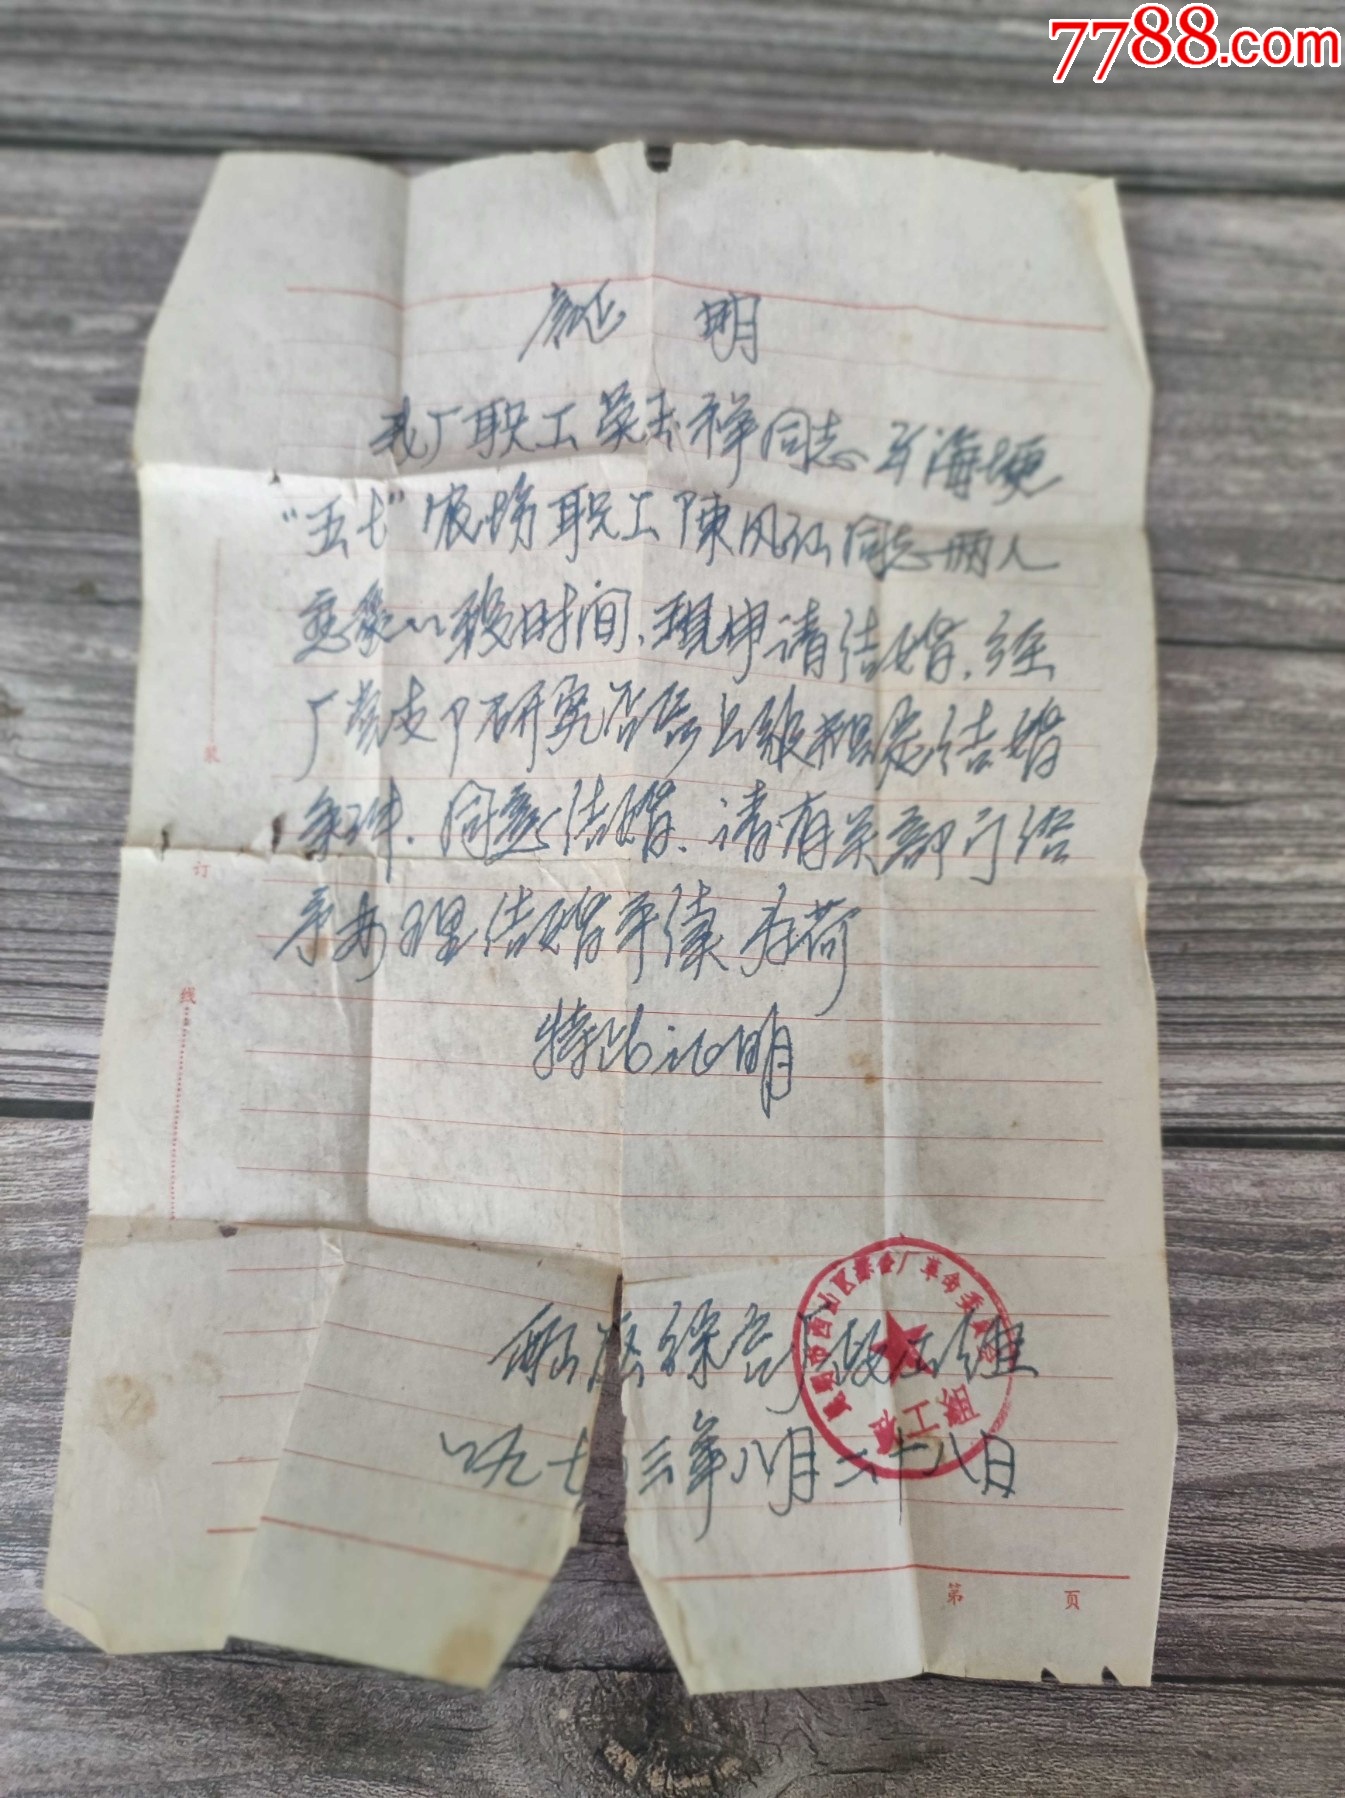 7788.com
证 明
我厂职工吴玉祥同志与海埂
"五七"农场职工陈凤仙同志两人
恋爱一段时间、现申请结婚、经
厂党支部研究符合上级规定结婚
条件、同意结婚、请有关部门给
予办理结婚手续为荷
特此证明
装
订
线
西山区综合厂政工组
一九七三年八月二十八日
昆明市西山区综合厂革命委员会
政工组
第 页